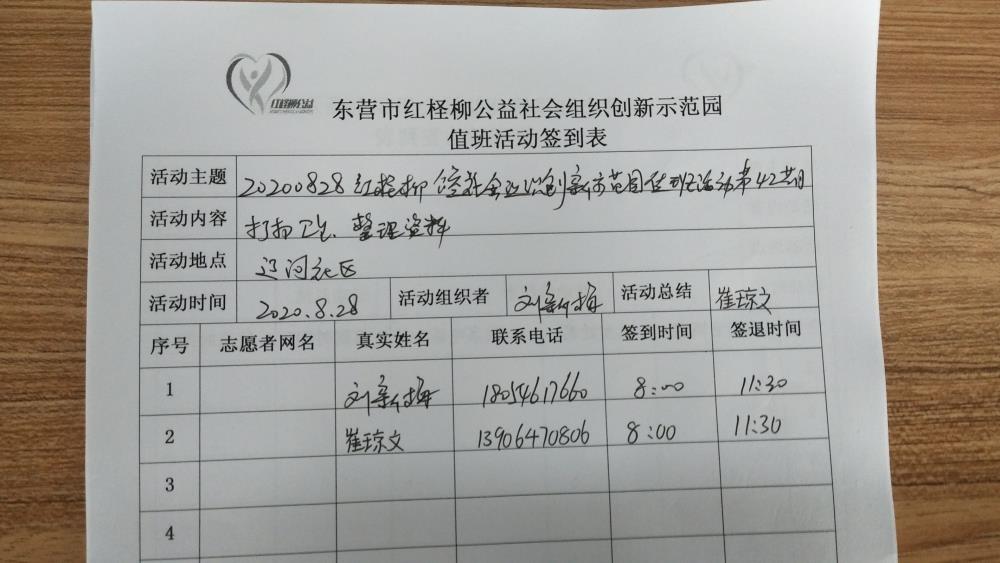 东营市红柽柳公益社会组织创新示范园
值班活动签到表
活动主题 20200828红柽柳公益社会组织创新示范园值班活动第42期
活动内容 打扫卫生、整理资料
活动地点 辽河社区
活动时间 2020.8.28 活动组织者 刘 梅 活动总结 崔琼文
序号 志愿者网名 真实姓名 联系电话 签到时间 签退时间
1 刘 梅 18054617660 8:00 11:30
2 崔琼文 13906470806 8:00 11:30
3
4